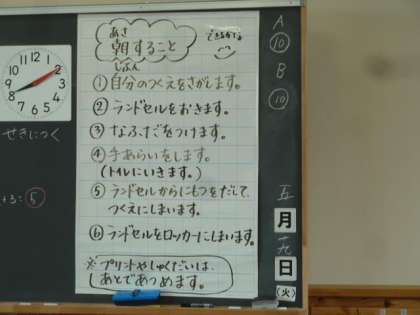 あさ
朝すること
できるかな
じぶん
① 自分のつくえをさがします。
② ランドセルをおきます。
③ なふだをつけます。
④ 手あらいをします。
(トイレにいきます。)
⑤ ランドセルからにもつをだして、
つくえにしまいます。
⑥ ランドセルをロッカーにしまいます。
※プリントやしゅくだいは、
あとであつめます。
せきにつく
⑤
A
⑩
B
⑩
五
月
日
(火)